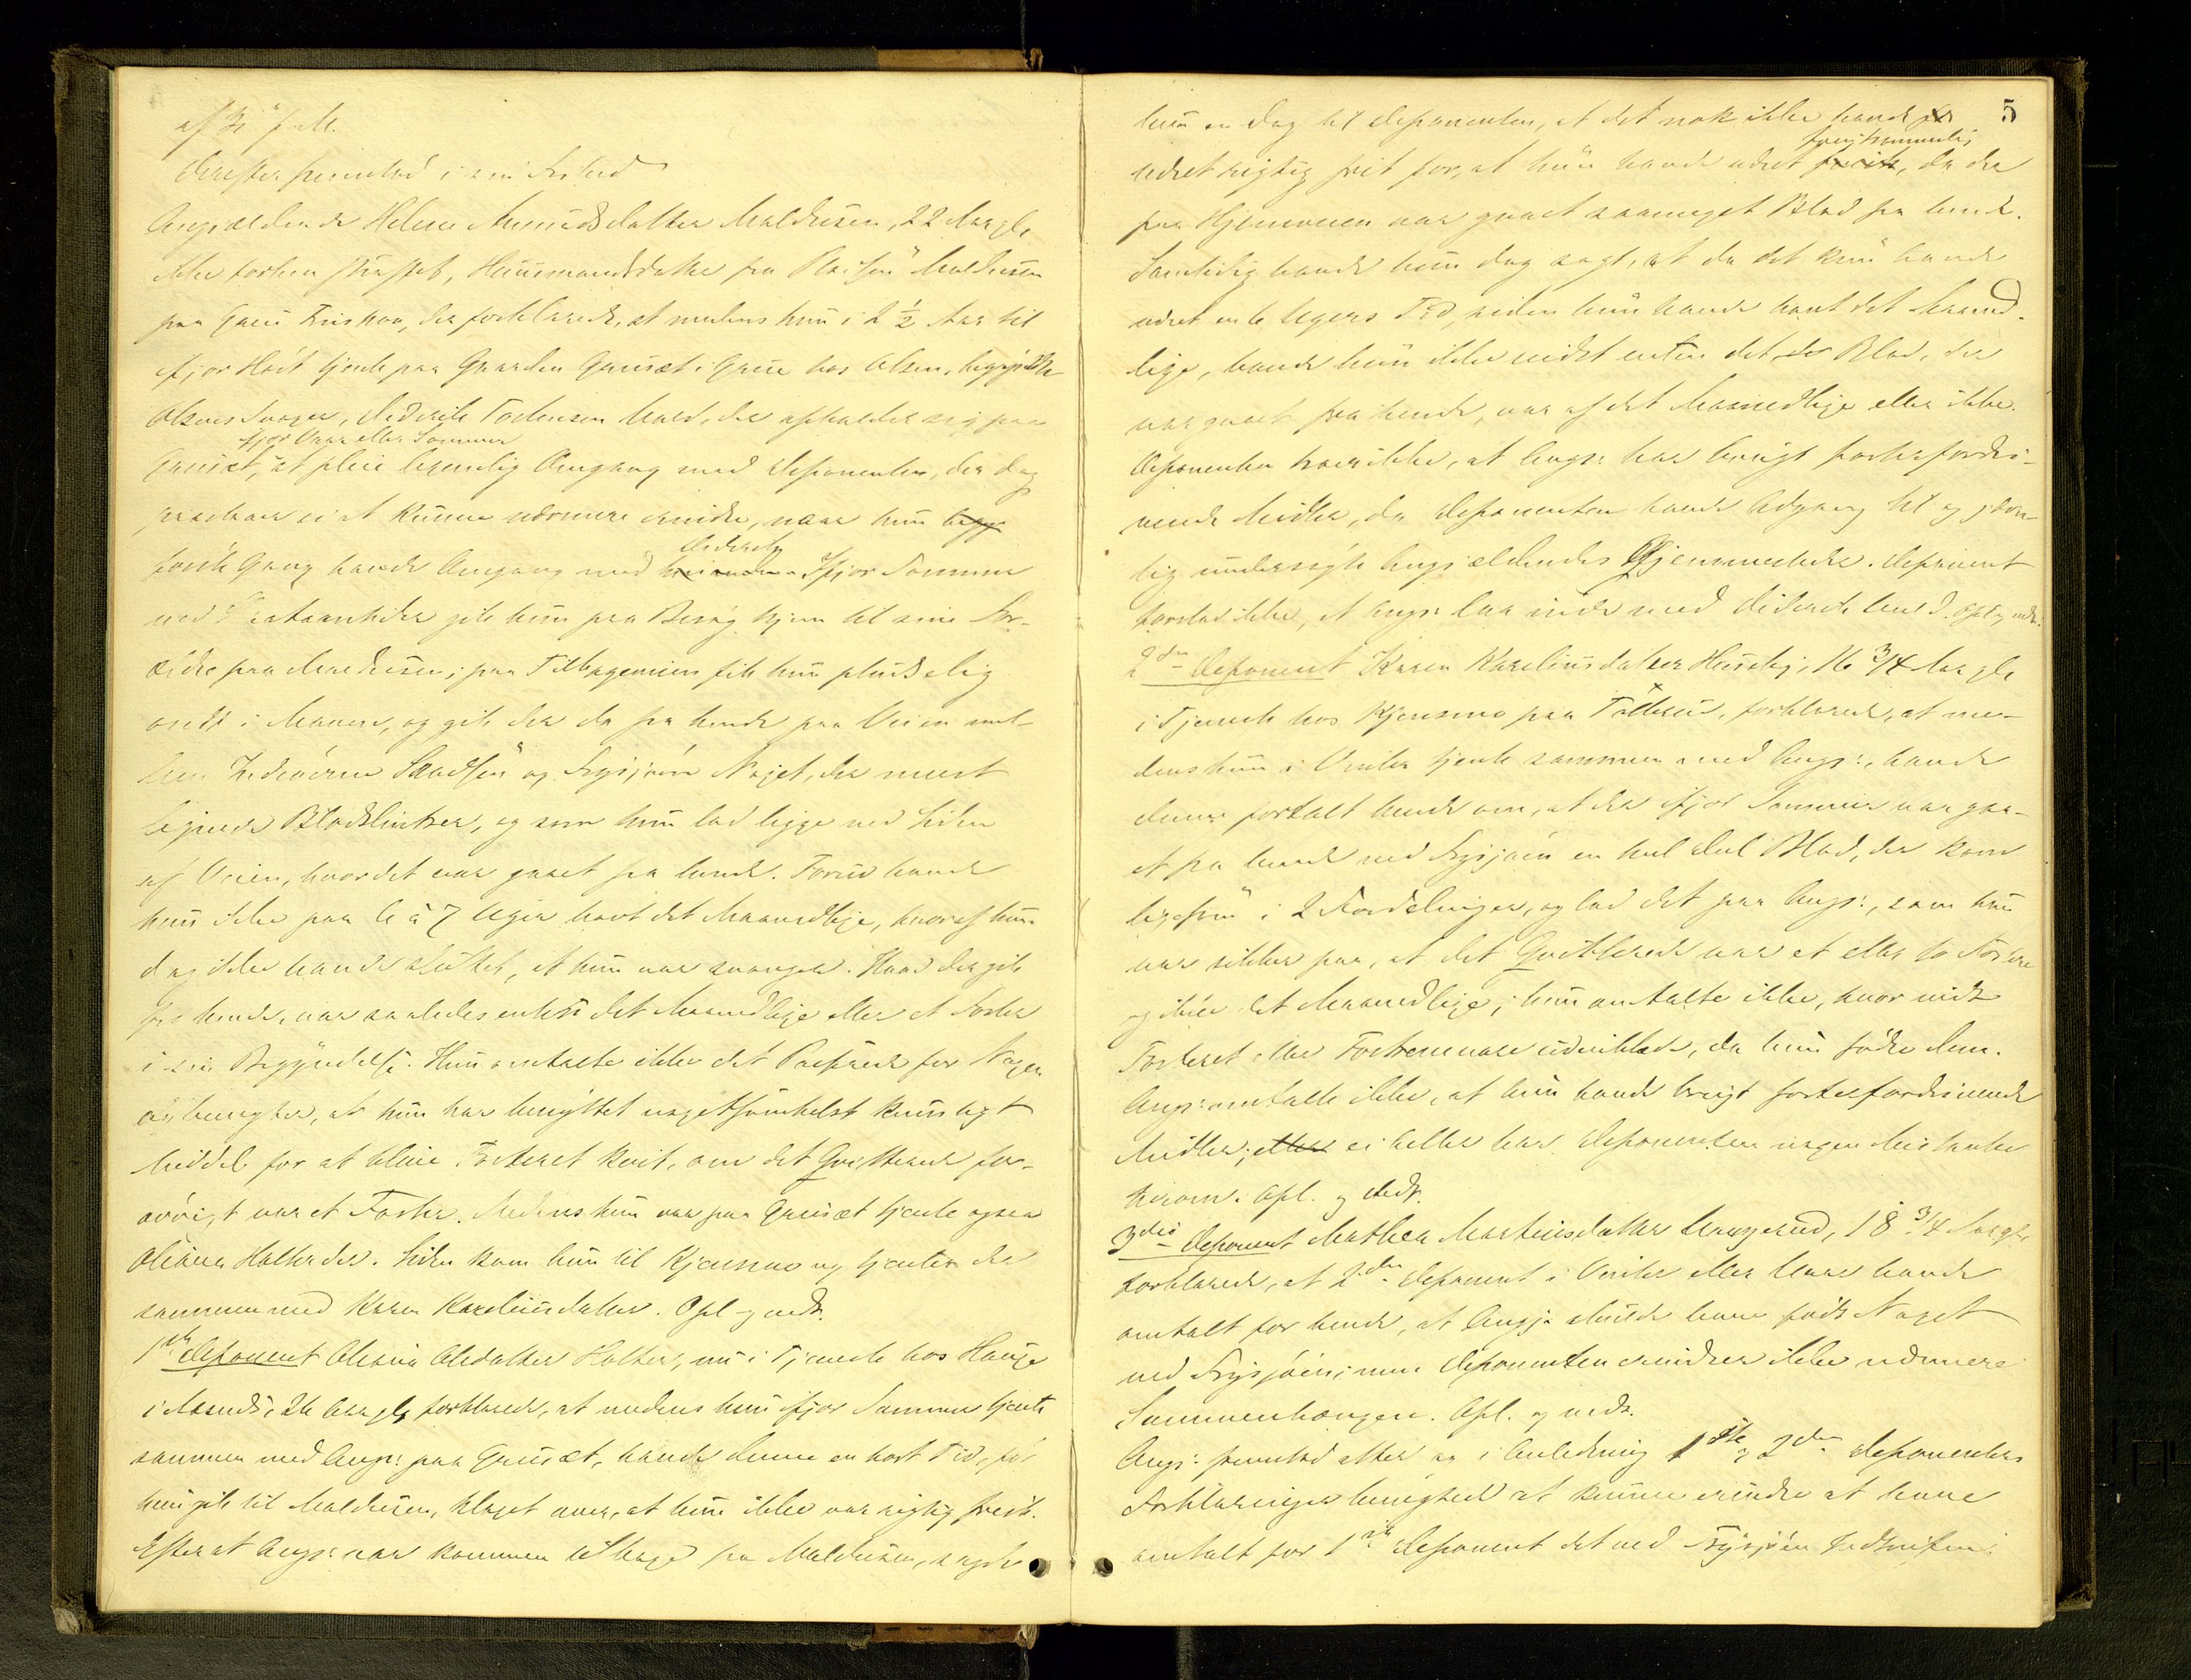 af 31 f. M.
Derefter fremstod i sin Frihed
Angjældende Helene Amundsdatter Maldiisen, 22 Aar gl.
ikke forhen straffet, Huusmandsdatter fra Pladsen Maldiisen
paa Grue Finskov, der forklarede, at medens hun i 2 ½ Aar til
ifjor Høst tjente paa Gaarden Gruset i Grue hos Olsen, begyndte
Olsens Svoger, Diderik Torkensen Lund, der opholder sig paa
ifjor Vaar eller Sommer
Gruset, at pleie legemlig Omgang med Deponenten, der dog
paastaar ei at kunne nærmere erindre, naar hun
første Gang havde Omgang med Diderik. Ifjor Sommer
ved gik hun paa Besøg hjem til sine For-
ældre paa Maldiisen; paa Tilbageveien fik hun pludselig
ondt i Maven, og gik der da fra hende paa Veien mel-
lem Pladsen og Frysjøen Noget, der meest
lignede Blodklumper, og som hun lod ligge ved Siden
af Veien, hvor det var gaaet fra hende. Forud havde
hun ikke paa 6 à 7 Uger havt det Maanedlige, hvoraf hun
dog ikke havde sluttet, at hun var svanger. Hvad der gik
fra hende, var saaledes enten det Maanedlige eller et Foster
i sin Begyndelse. Hun omtalte ikke det Passerede for Nogen
og benegter, at hun har benyttet nogetsomhelst kunstigt
Middel for at blive Fosteret kvit, om det Qvitterede for-
øvrigt var et Foster. Medens hun var paa Gruset tjente ogsaa
Oleana Holter der. Siden kom hun til Kjensmo og tjente der
sammen med Karen Karelius datter. Opl. og vedt.
1ste Deponent Oleana Oledatter Holter, nu i Tjeneste hos Hauge
i Aasnes, 26 Aar gl., forklarede, at medens hun ifjor Sommer tjente
sammen med Angj: paa Gruset, havde denne en kort Tid, før
hun gik til Maldiisen, klaget over, at hun ikke var rigtig frisk.
Efterat Angj: var kommen tilbage fra Maldiisen, sagde
5
hun en Dag til Deponenten, at det nok ikke havde
frugtsommelig
været rigtig frit for, at hun havde været , da der
paa Hjemveien var gaaet saameget Blod fra hende.
Samtidig havde hun dog sagt, at da det kun havde
været en 6 Ugers Tid, siden hun havde havt det Maaned-
lige, havde hun ikke vidst enten det Blod, der
var gaaet fra hende, var af det Maanedlige eller ikke.
Deponenten troer ikke, at Angj: har brugt fosterfordri-
vende Midler, da Deponenten havde Adgang til og jævn-
lig undersøgte Angjældendes Gjemmesteder. Deponent
forstod ikke, at Angj: laa inde med Diderik Lund. Opl. og vedt.
2den Deponent Karen Kareliusdatter Huseby, 16 3/4 Aar gl.
i Tjeneste hos Kjensmo paa , forklarede, at me-
dens hun i Vinter tjente sammen med Angj:, havde
denne fortalt hende om, at der ifjor Sommer var gaa-
et fra hende ved Frysjøen en hel Del Blod, der kom
ligesom i 2 Fordelinger, og lod det paa Angj:, som hun
var sikker paa, at det Qvitterede var et eller to Fostre
og ikke det Maanedlige; hun omtalte ikke, hvor vidt
Fosteret eller Fostrene vare udviklede, da hun fødte dem.
Angj: omtalte ikke, at hun havde brugt fosterfordrivende
Midler; ei heller har Deponenten nogen Mistanke
herom. Opl. og Vedt.
3die Deponent Mathea Martinisdatter , 18 3/4 Aar gl.
forklarede, at 2den Deponent i Vinter eller Vaar havde
omtalt for hende, at Angj: skulde have født Noget
ved Frysjøen; men Deponenten erindrer ikke nærmere
Sammenhængen. Opl. og vedt.
Angj: fremstod atter og i Anledning 1ste og 2den Deponenters
Forklaringer benegtede at kunne erindre at have
omtalt for 1ste Deponent det ved Frysjøen Indtrufne.